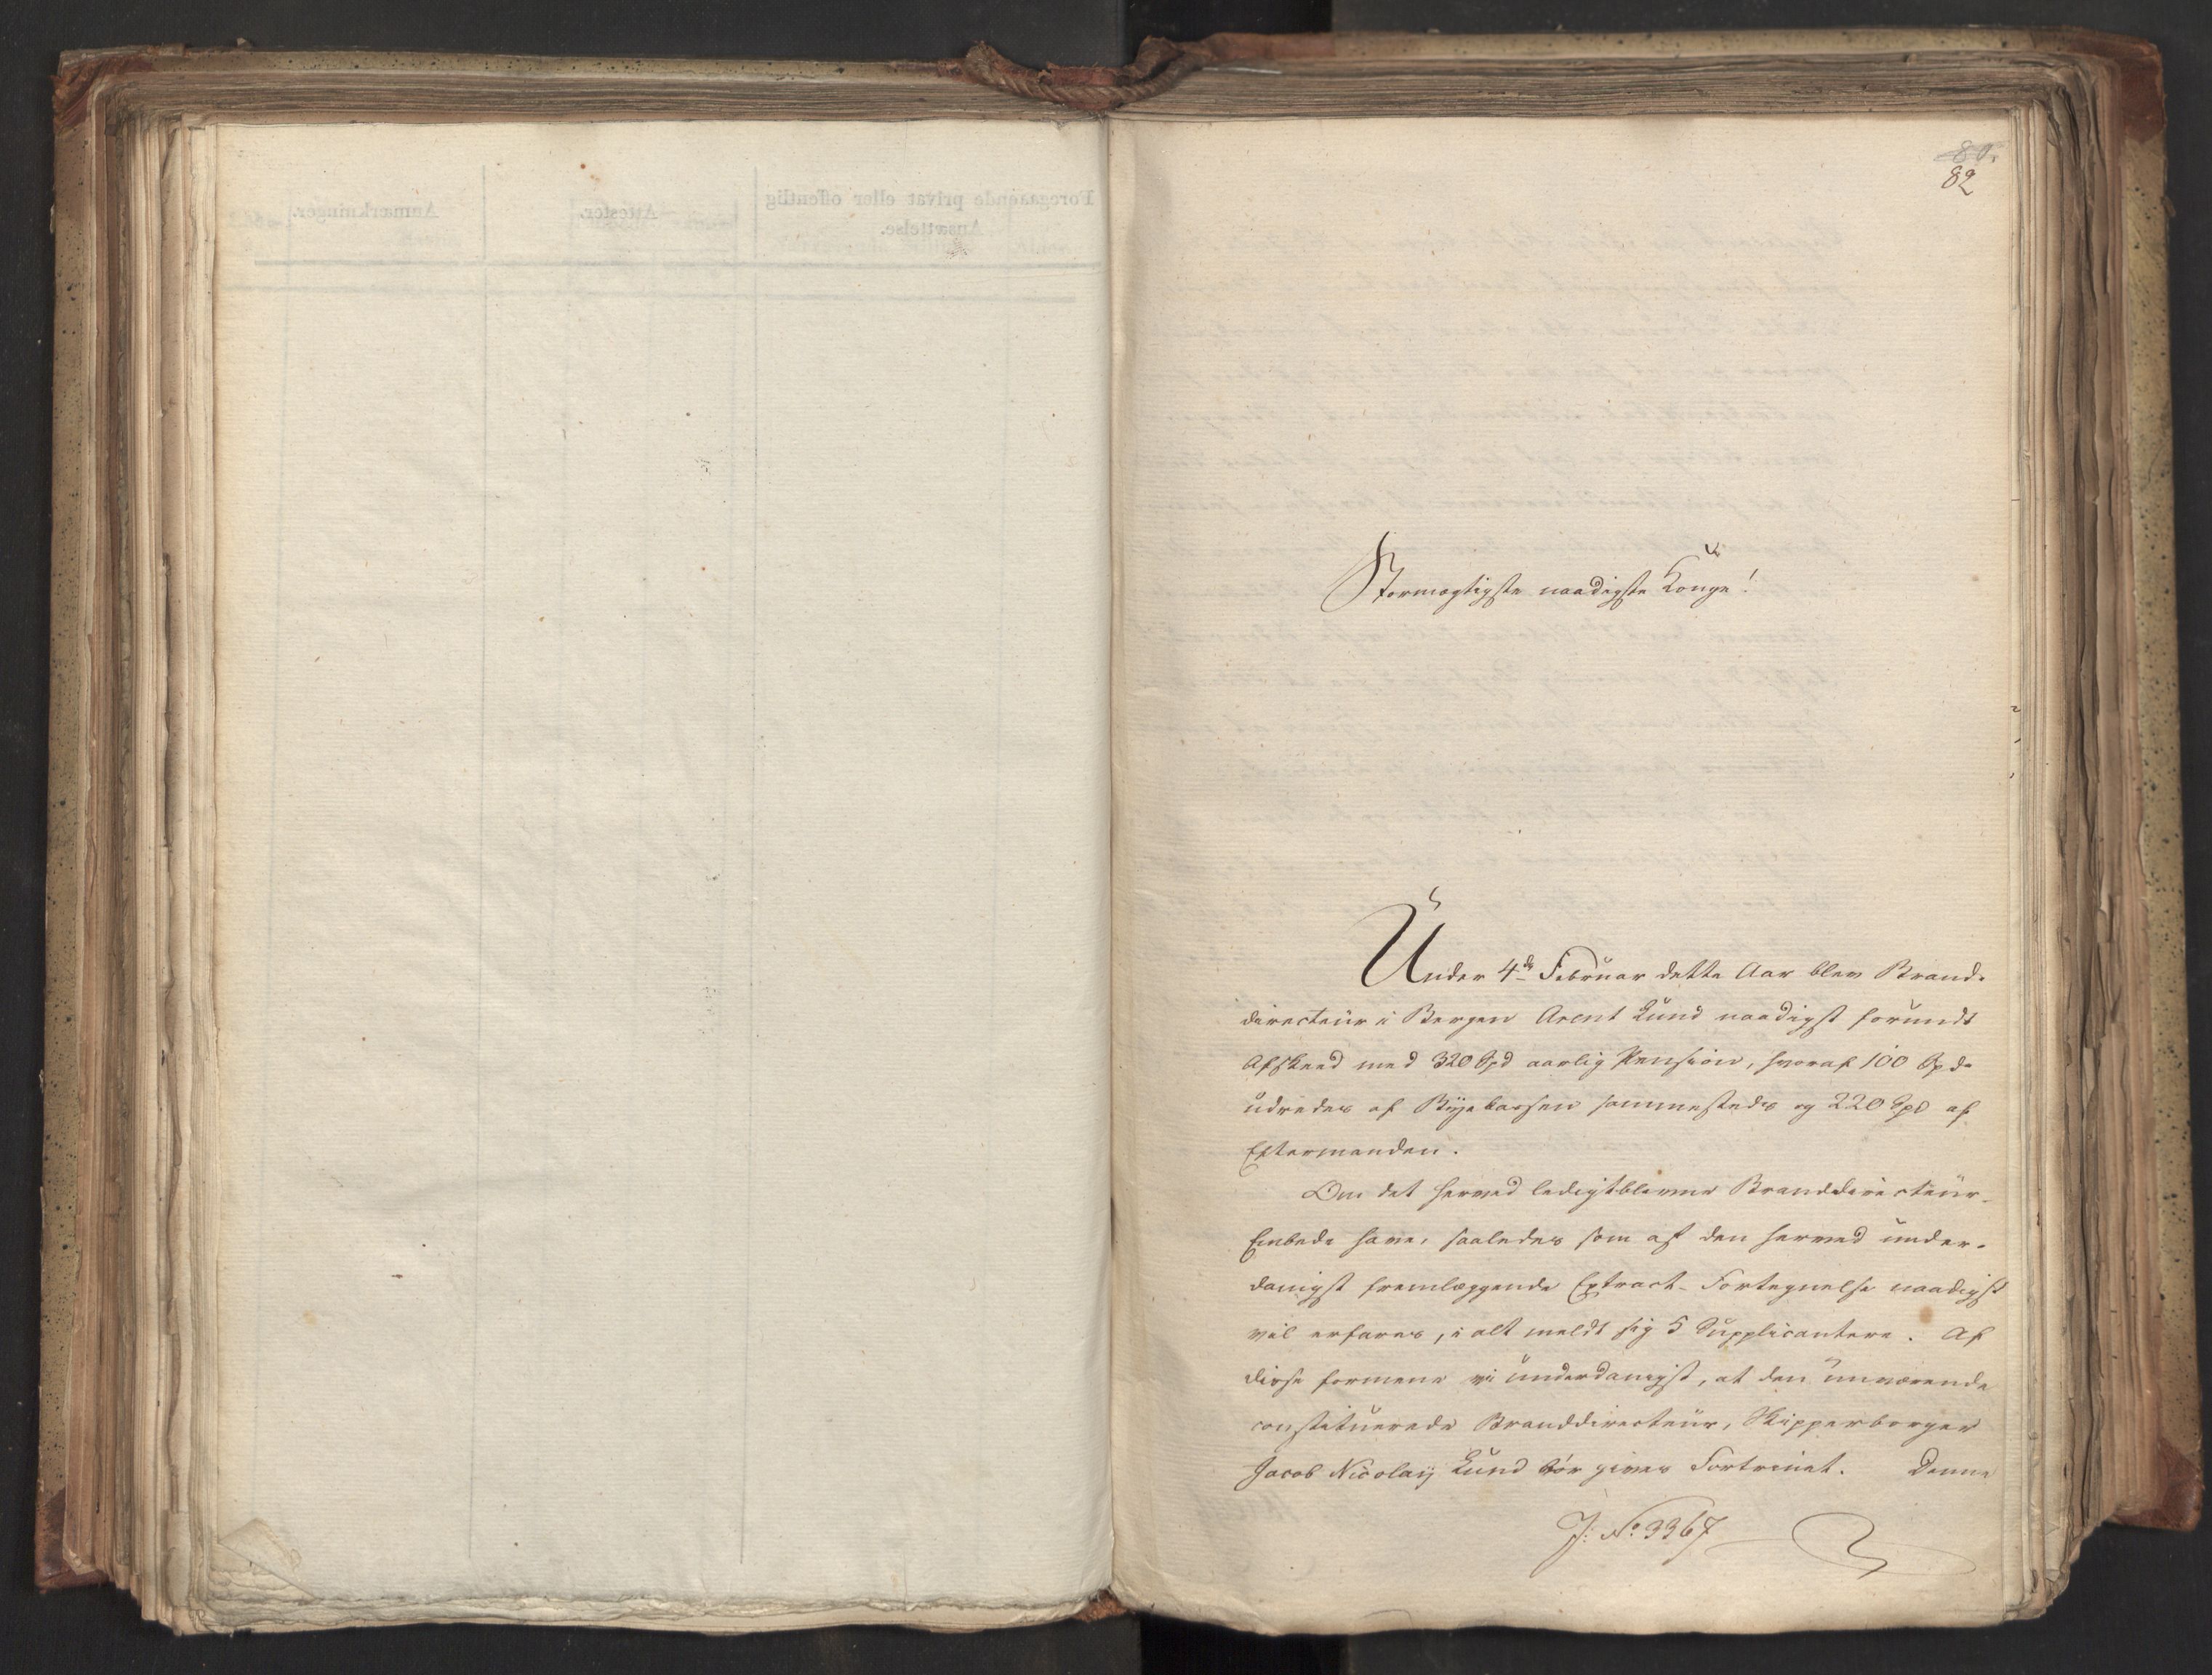 82
Stormægtigste naadigste Konge!
Under 4de Februar dette Aar blev Brand-
directeur i Bergen Arent Lund naadigst forundt
Afskeed med 320 Spd aarlig Pension, hvoraf 100 Spd.
udredes af Byekassen sammesteds og 220 Spd af
Eftermanden.
Om det herved ledigtblevne Branddirecteur-
Embede have, saaledes som af den herved under-
danigst fremlæggende Extract-Fortegnelse naadigst
vil erfares, i alt meldt sig 5 Supplicantere. Af
disse formene vi underdanigst, at den nuværende
constituerede Branddirecteur, Skipperborger
Jacob Nicolay Lund bör gives Fortrinet. Denne
J: No. 3367